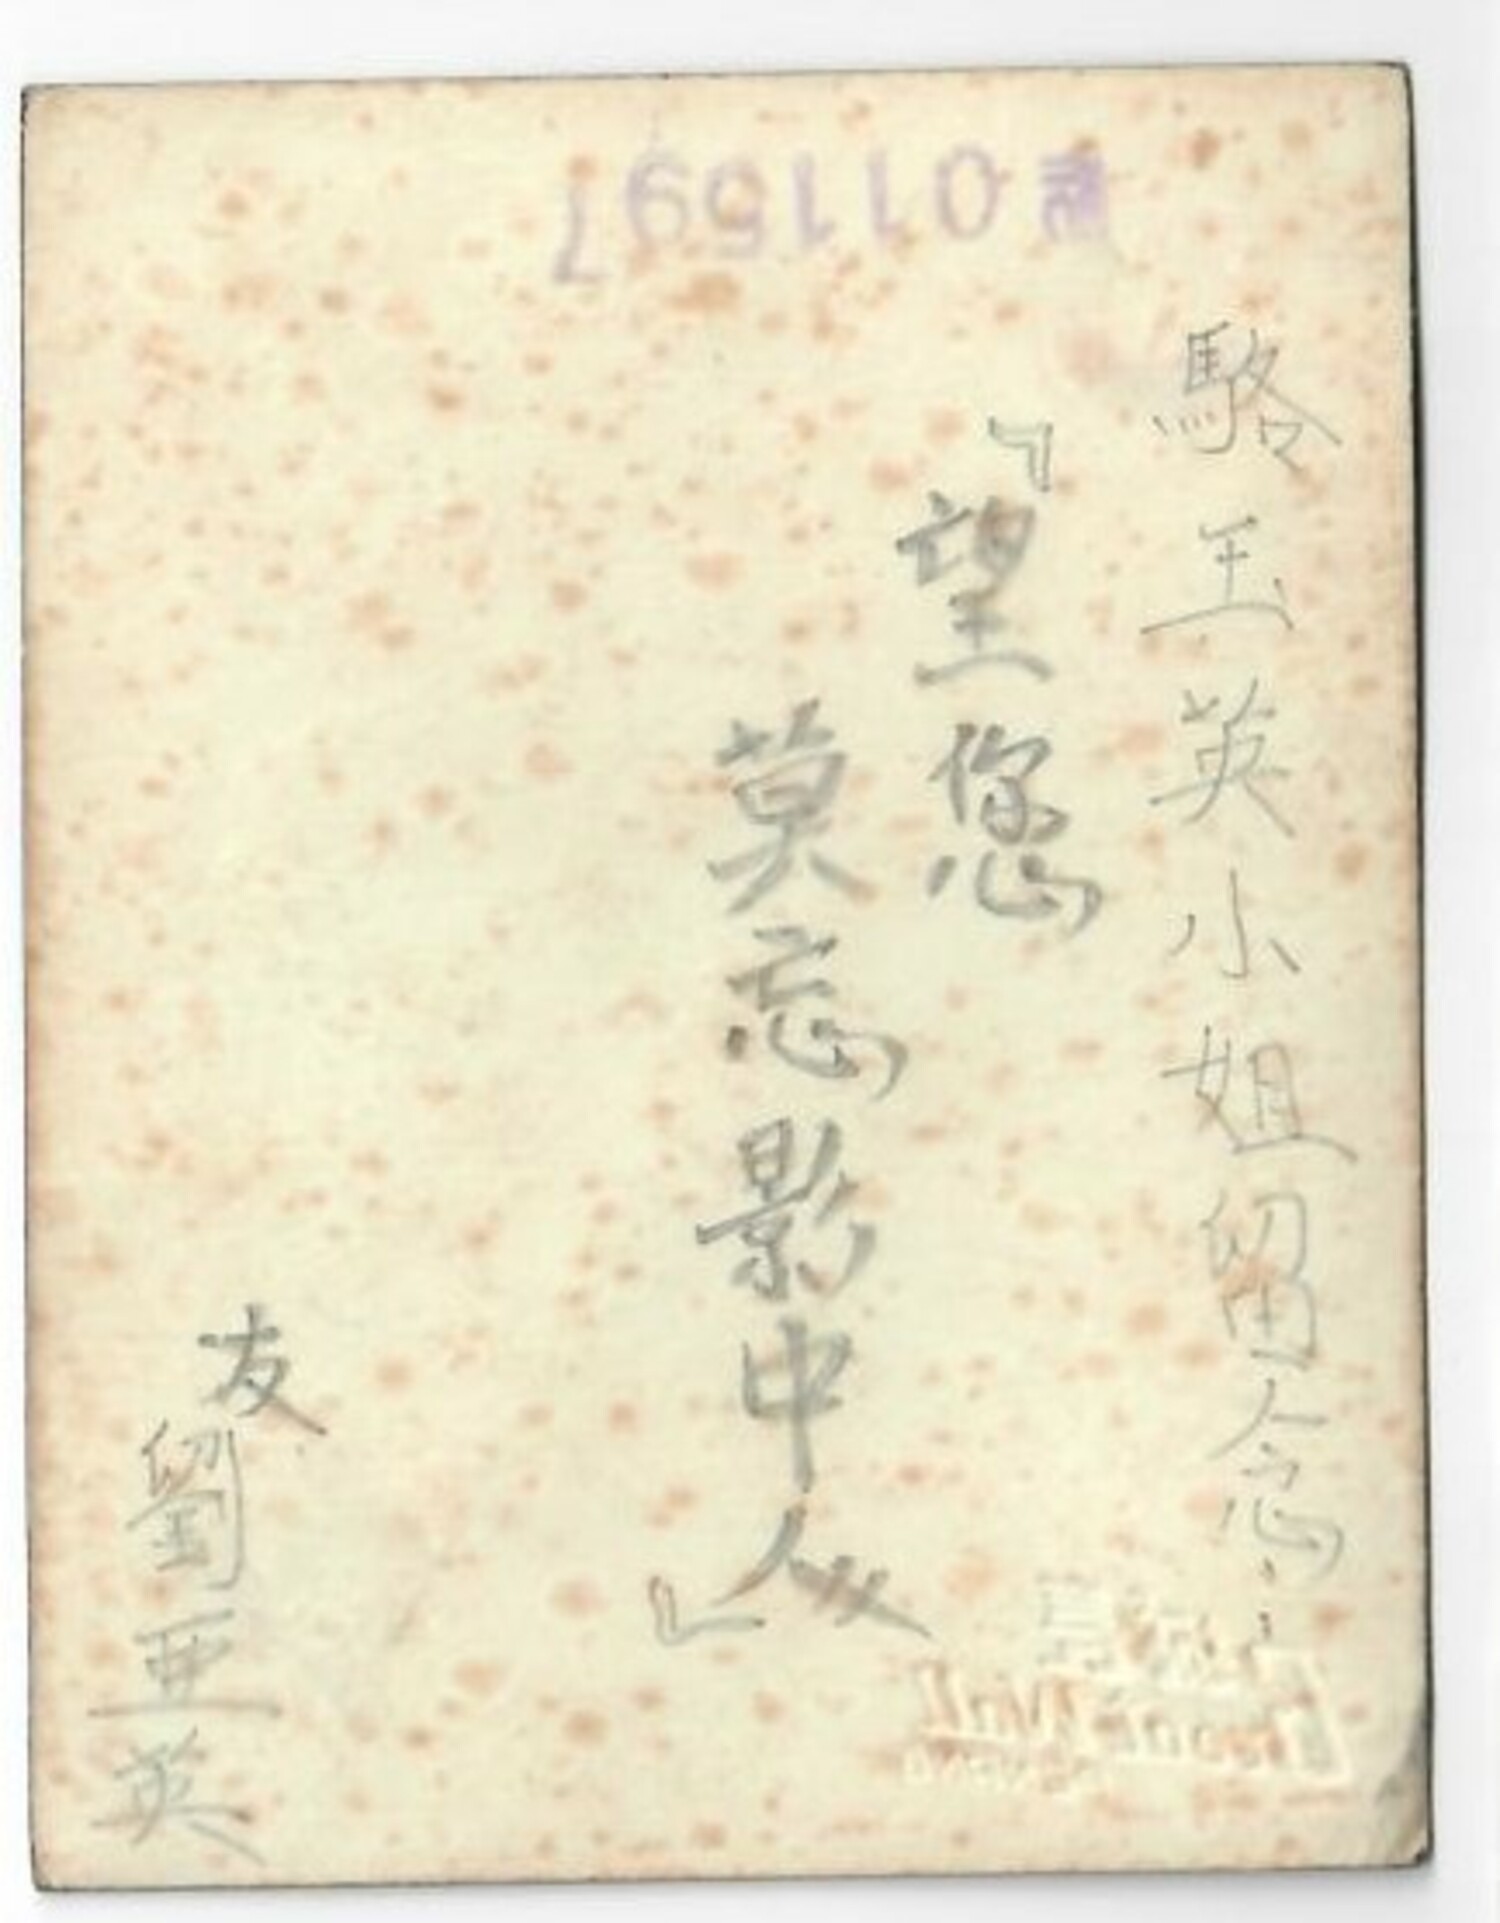 駱玉英小姐留念
『望您
莫忘影中人』
友
劉亜英
011597